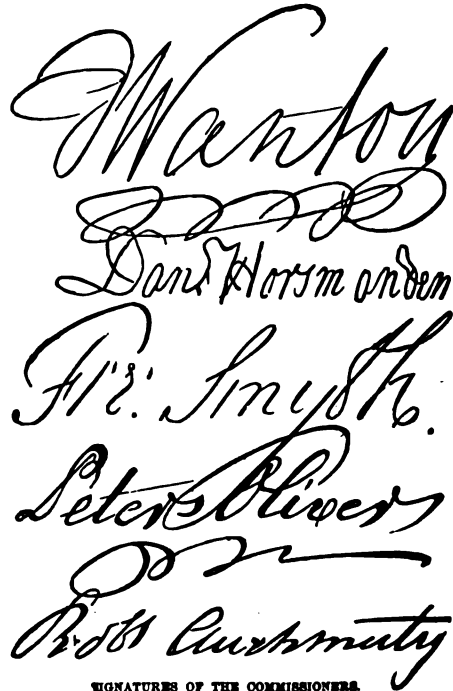 J Wanton
Danl Horsmanden
Fre: Smyth.
Peter Oliver
Robt Auchmuty
SIGNATURES OF THE COMMISSIONERS.